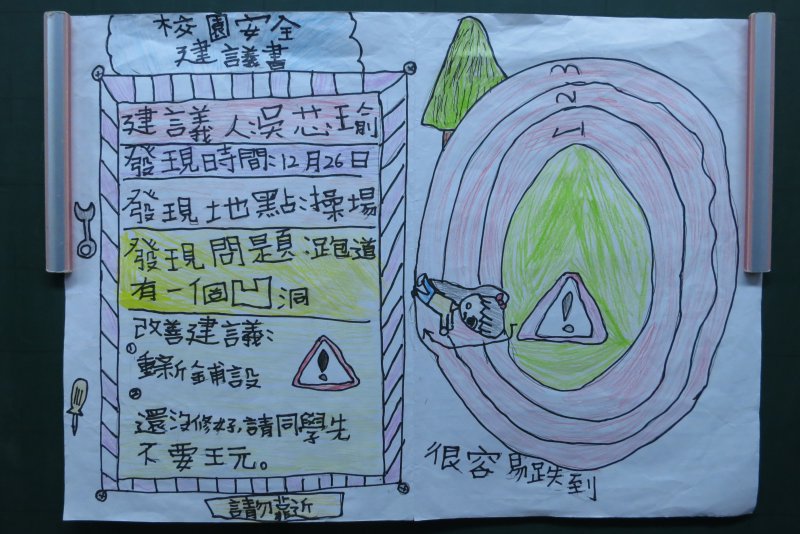 校園安全
建議書
建議人:吳芯瑜
發現時間:12月26日
發現地點:操場
發現問題:跑道
有一個凹洞
改善建議:
①
重新鋪設
②
還沒修好,請同學先
不要王元。
請勿靠近
1 2 3
很容易跌到